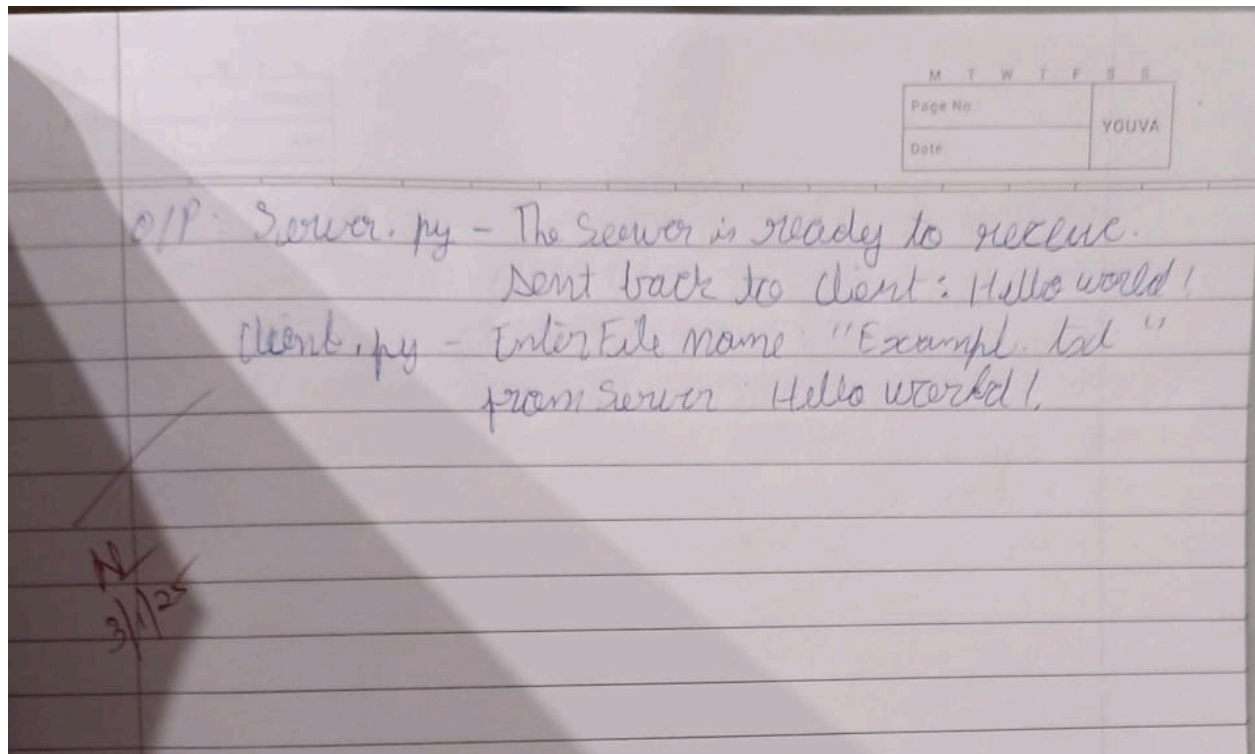 M T W T F S S
Page No.
YOUVA
Date
O/P. Server.py - The Seever is ready to receive.
Sent back to Client: Hello world!
Client.py - Enter File name "Exampl.txt"
from Server Hello world!
3/1/25